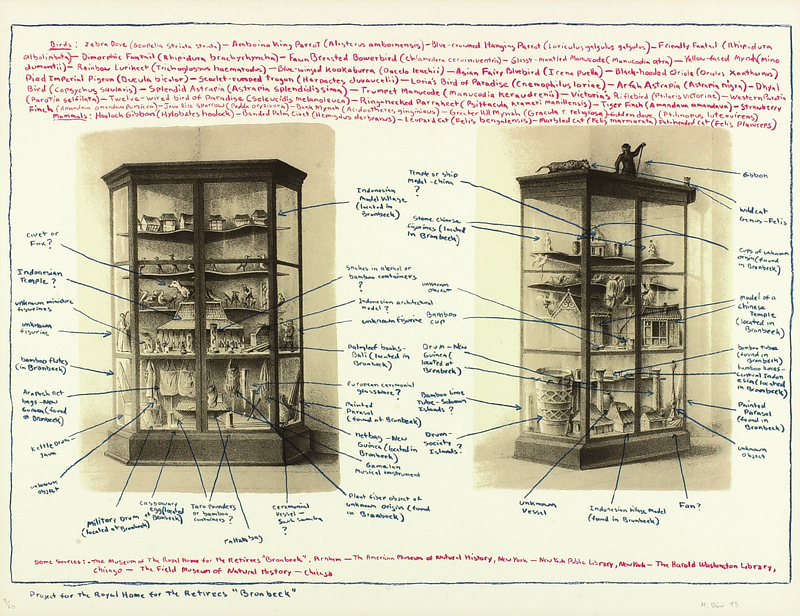 Birds: Zebra Dove (Geopelia striata striata)—Amboina King Parrot (Alisterus amboinensis)—Blue-crowned Hanging Parrot (Loriculus galgulus galgulus)—Friendly Fantail (Rhipidura
albolimbata)—Dimorphic Fantail (Rhipidura brachyrhyncha)—Fawn Breasted Bowerbird (Chlamydera cerviniventris)—Glossy-mantled Manucode (Manucodia atra)—Yellow-faced Mynah (Mino
dumontii)—Rainbow Lorikeet (Trichoglossus haematodus)—Blue-winged Kookaburra (Dacelo leachii)—Asian Fairy Bluebird (Irena puella)—Black-hooded Oriole (Oriolus Xanthornus)
Pied Imperial Pigeon (Ducula bicolor)—Scarlet-rumped trogon (Harpactes duvaucelii)—Loria's Bird of Paradise (Cnemophilus loriae)—Arfak Astrapia (Astrapia nigra)—Dhyal
Bird (Copsychus saularis)—Splendid Astrapia (Astrapia splendidissima)—Trumpet Manucode (Manucodia Keraudrenii)—Victoria's Riflebird (Ptiloris Victoriae)—Western Parotia
(Parotia sefilata)—Twelve-wired bird of Paradise (Seleucidis melanoleuca)—Ring-necked Parrakeet (Psittacula krameri manillensis)—Tiger Finch (Amandava amandava)—Strawberry
Finch (Amandava amandava Punicea)—Java Rice sparrow (Padda oryzivora)—Bank Mynah (Acridotheres ginginianus)—Greater Hill Mynah (Gracula religiosa)—Golden dove (Ptilinopus luteovirens)
Mammals: Hoolock Gibbon (Hylobates hoolock)—Banded Palm Civet (Hemigalus derbyanus)—Leopard Cat (Felis bengalensis)—Marbled Cat (Felis marmorata) Flat-headed Cat (Felis Planiceps)
Civet or
Fox?
Indonesian
Temple?
unknown miniature
figurines
unknown
figurine
bamboo flutes
(in Bronbeek)
Arapesh net
bags—New
Guinea (found
at Bronbeek)
Kettle Drum—
Java
unknown
object
Military Drum
(located at Bronbeek)
Cassowary
egg (located at
Bronbeek)
Taro Pounders
or bamboo
containers?
rattan bag
Ceremonial
Vessel—
South Sumatra
?
Indonesian
Model Village
(located in
Bronbeek)
Snakes in alcohol or
bamboo containers
?
Indonesian architectural
Model?
unknown figurine
Palmleaf books—
Bali (located in
Bronbeek)
European ceremonial
glassware?
Painted
Parasol
(found at Bronbeek)
netbag—New
Guinea (located in
Bronbeek)
Gamelan
Musical instrument
Plant fiber object of
unknown origin (found
in Bronbeek)
Temple or ship
Model—China
?
Stone chinese
figurines (located
in Bronbeek)
unknown
object
Bamboo
cup
Drum—New
Guinea (
located at
Bronbeek)
Bamboo Lime
Tube—Solomon
Islands?
Drum—
Society?
Islands.
unknown
Vessel
Indonesian Village Model
(found in Bronbeek)
Fan?
Gibbon
wildcat
Genus—Felis
Cups of unknown
origin (found
in Bronbeek)
Model of a
Chinese
Temple
(located in
Bronbeek)
bamboo tubes
(found in
Bronbeek)
bamboo boxes—
Central Indon
esia (located in
Bronbeek)
Painted
Parasol
(found in
Bronbeek)
unknown
object
Some Sources: — The Museum of The Royal Home for The Retirees "Bronbeek", Arnhem — The American Museum of Natural History, New York — New York Public Library, New York — The Harold Washington Library,
Chicago — The Field Museum of Natural History — Chicago
Project for The Royal Home for The Retirees "Bronbeek"